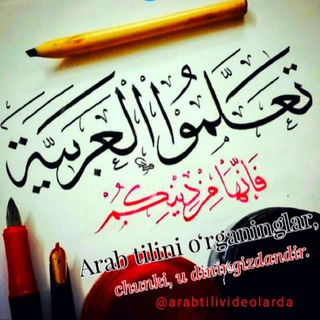 تعلّموا العَربيّة
فَإنّها مِن دِينِكُم
Arab tilini o‘rganinglar,
chunki, u diningizdandir.
@arabtilivideolarda